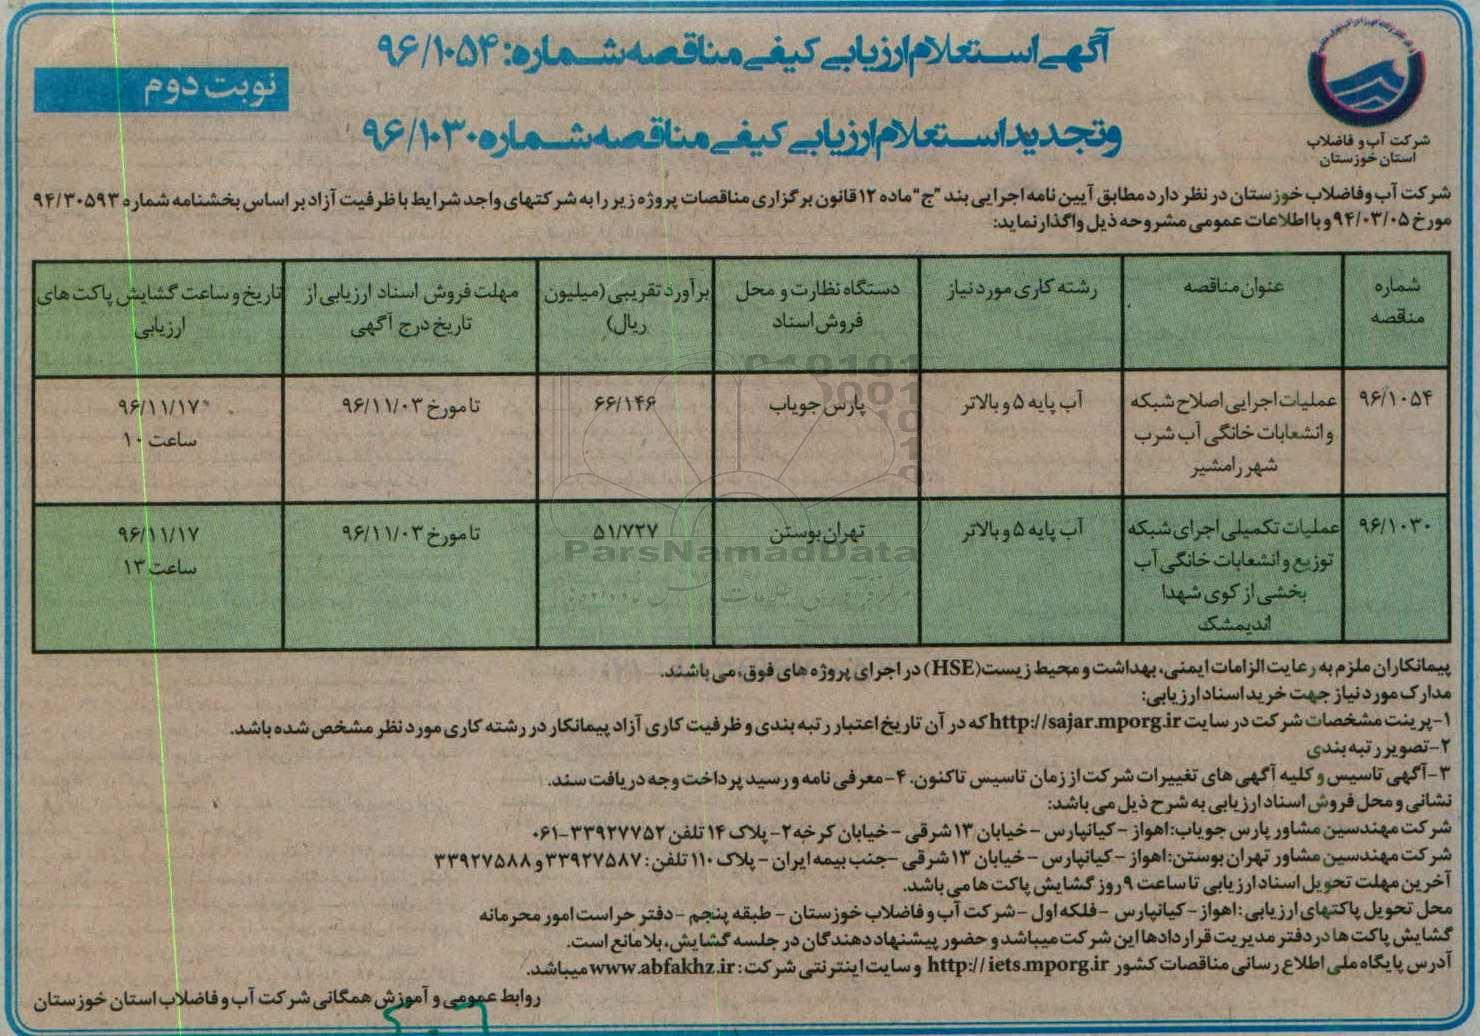 آگهی استعلام ارزیابی کیفی مناقصه شماره: ۹۶/۱۰۵۴
نوبت دوم
و تجدید استعلام ارزیابی کیفی مناقصه شماره ۹۶/۱۰۳۰
شرکت آب و فاضلاب
استان خوزستان
شرکت آب و فاضلاب خوزستان در نظر دارد مطابق آیین نامه اجرایی بند "ج" ماده ۱۲ قانون برگزاری مناقصات پروژه زیر را به شرکتهای واجد شرایط با ظرفیت آزاد بر اساس بخشنامه شماره ۹۴/۳۰۵۹۳
مورخ ۹۴/۰۳/۰۵ و با اطلاعات عمومی مشروحه ذیل واگذار نماید:
شماره مناقصه | عنوان مناقصه | رشته کاری مورد نیاز | دستگاه نظارت و محل فروش اسناد | برآورد تقریبی (میلیون ریال) | مهلت فروش اسناد ارزیابی از تاریخ درج آگهی | تاریخ و ساعت گشایش پاکت های ارزیابی
۹۶/۱۰۵۴ | عملیات اجرایی اصلاح شبکه و انشعابات خانگی آب شرب شهر رامشیر | آب پایه ۵ و بالاتر | پارس جویاب | ۶۶/۱۴۶ | تا مورخ ۹۶/۱۱/۰۳ | ۹۶/۱۱/۱۷ ساعت ۱۰
۹۶/۱۰۳۰ | عملیات تکمیلی اجرای شبکه توزیع و انشعابات خانگی آب بخشی از کوی شهدا اندیمشک | آب پایه ۵ و بالاتر | تهران بوستن | ۵۱/۷۲۷ | تا مورخ ۹۶/۱۱/۰۳ | ۹۶/۱۱/۱۷ ساعت ۱۳
ParsNamadData
پیمانکاران ملزم به رعایت الزامات ایمنی، بهداشت و محیط زیست (HSE) در اجرای پروژه های فوق، می باشند.
مدارک مورد نیاز جهت خرید اسناد ارزیابی:
۱-پرینت مشخصات شرکت در سایت http://sajar.mporg.ir که در آن تاریخ اعتبار رتبه بندی و ظرفیت کاری آزاد پیمانکار در رشته کاری مورد نظر مشخص شده باشد.
۲-تصویر رتبه بندی
۳-آگهی تاسیس و کلیه آگهی های تغییرات شرکت از زمان تاسیس تاکنون. ۴-معرفی نامه و رسید پرداخت وجه دریافت سند.
نشانی و محل فروش اسناد ارزیابی به شرح ذیل می باشد:
شرکت مهندسین مشاور پارس جویاب: اهواز - کیانپارس - خیابان ۱۳ شرقی - خیابان کرخه ۲- پلاک ۱۴ تلفن ۳۳۹۲۷۷۵۲-۰۶۱
شرکت مهندسین مشاور تهران بوستن: اهواز - کیانپارس - خیابان ۱۳ شرقی - جنب بیمه ایران - پلاک ۱۱۰ تلفن: ۳۳۹۲۷۵۸۷ و ۳۳۹۲۷۵۸۸
آخرین مهلت تحویل اسناد ارزیابی تا ساعت ۹ روز گشایش پاکت ها می باشد.
محل تحویل پاکتهای ارزیابی: اهواز - کیانپارس - فلکه اول - شرکت آب و فاضلاب خوزستان - طبقه پنجم - دفتر حراست امور محرمانه
گشایش پاکت ها در دفتر مدیریت قراردادها این شرکت میباشد و حضور پیشنهاد دهندگان در جلسه گشایش، بلامانع است.
آدرس پایگاه ملی اطلاع رسانی مناقصات کشور http://iets.mporg.ir و سایت اینترنتی شرکت: www.abfakhz.ir میباشد.
روابط عمومی و آموزش همگانی شرکت آب و فاضلاب استان خوزستان